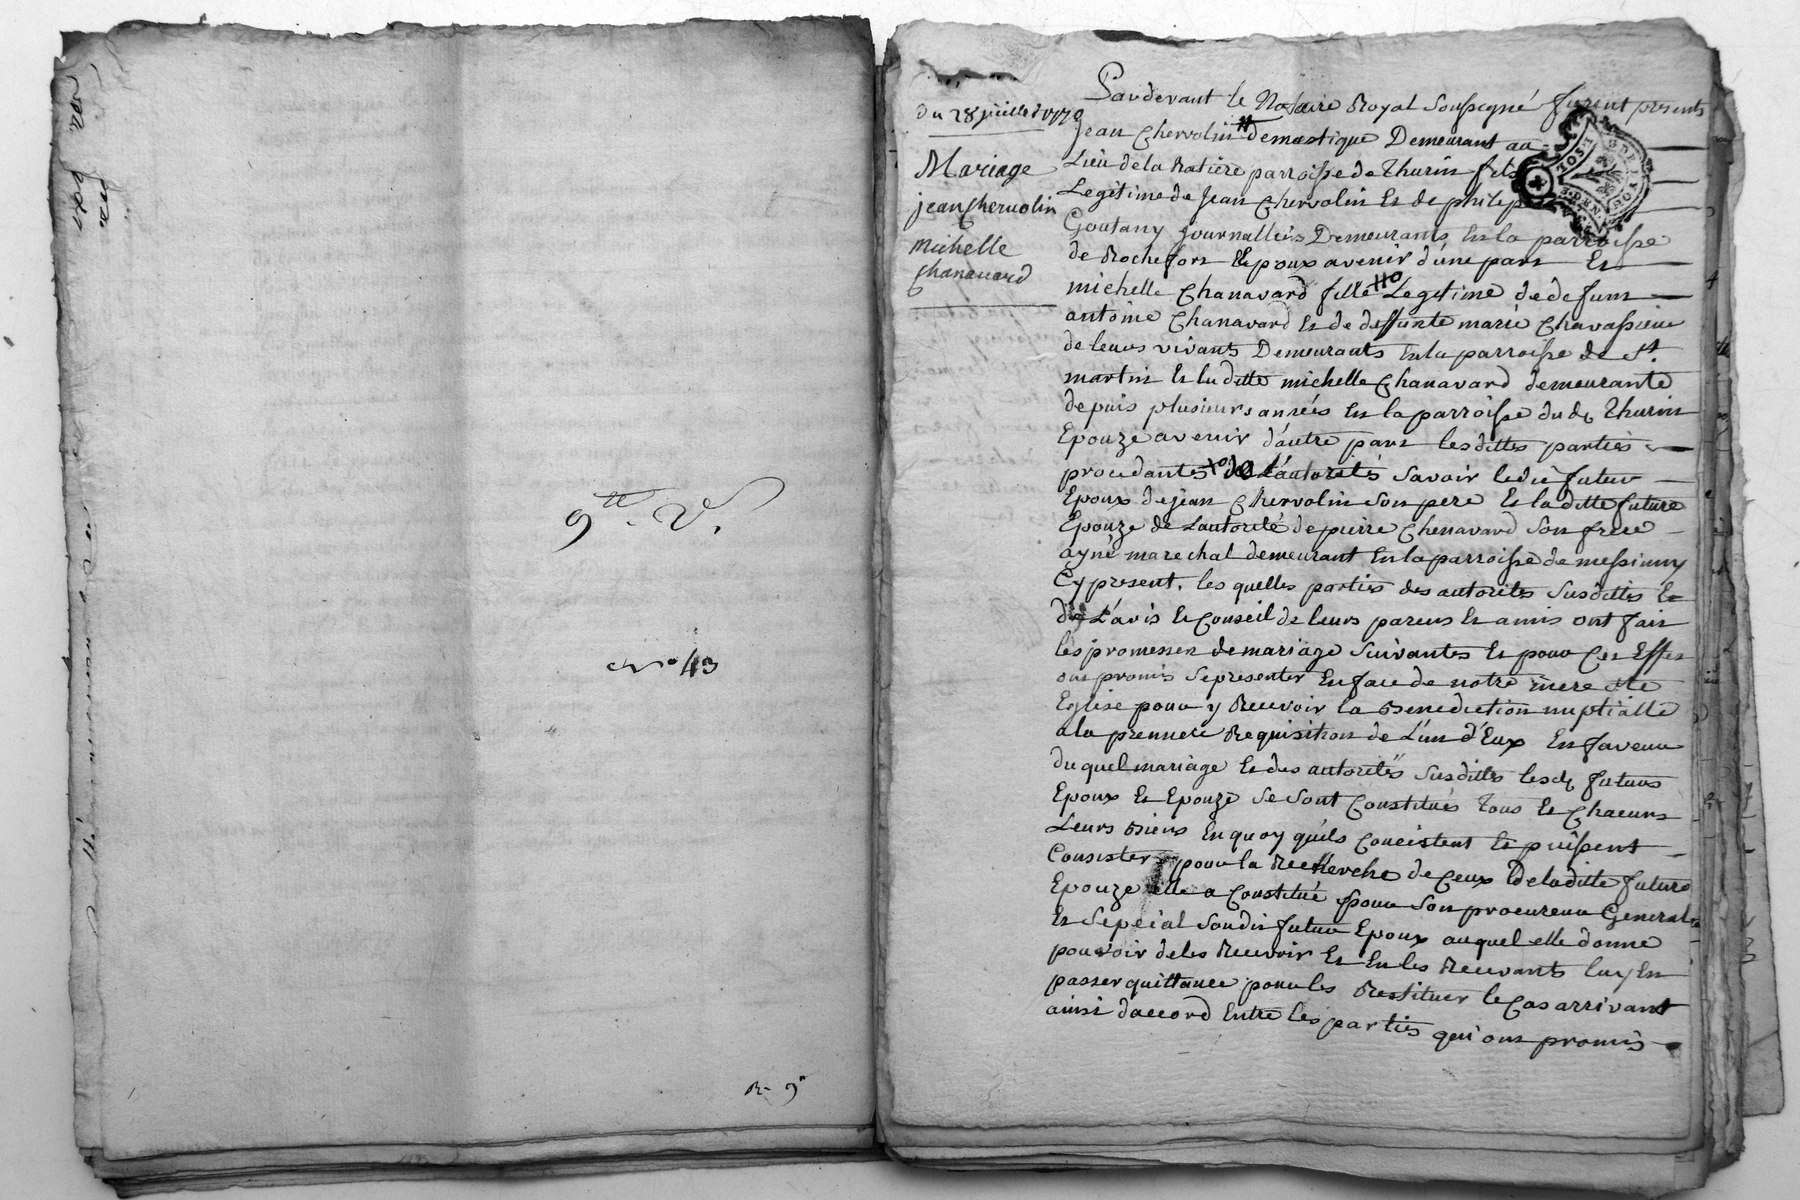 9te. V.
N° 43
R. 9r
du 28 juillet 1770
Mariage
jean Chervolin
michelle
Chanavard
Pardevant le Notaire Royal Soussigné furent presents
jean Chervolin demestique Demeurant au
Lieu de la Ratiere parroisse de Thurin fils
Legitime de jean Chervolin Et de
Goutany journalliers Demeurants En la parroisse
de Rochefort Epoux avenir d'une part Et
michelle Chanavard fille Legitime de defunt
antoine Chanavard Et de deffunte marie Chavassieue
de leurs vivants Demeurants En la parroisse de St.
martin Et la ditte michelle Chanavard demeurante
depuis plusieurs années En la parroisse dud Thurin
Epouze avenir d'autre part les dittes parties
procedantes de L'autorités savoir le dit futur
Epoux de jean Chervolin son pere Et la ditte future
Epouze de L'autorité de pierre Chenavard son frere
ayné marechal demeurant En la parroisse de messimy
Cy present, les quelles parties des autorités susdittes Et
de L'avis Et Conseil de leurs parens Et amis ont fait
les promesses de mariage suivantes Et pour Cet Effet
ont promis se presenter En face de notre mere Ste
Eglise pour y Recevoir la Benediction nuptialle
a la premiere Requisition de L'un d'Eux En faveur
du quel mariage Et des autorités susdittes lesd futurs
Epoux Et Epouze se sont Constitués tous Et Chacuns
Leurs Biens En quoy qu'ils Concistent Et puissent
Consister pour la Recherche de Ceux de la ditte future
Epouze Elle a Constitué pour son procureur General
Et Sepecial son dit futur Epoux auquel elle donne
pouvoir de les Recevoir Et En les Recevants luy En
passer quittance pour les Restituer le Cas arrivant
ainsi d'accord Entre les parties qui ont promis